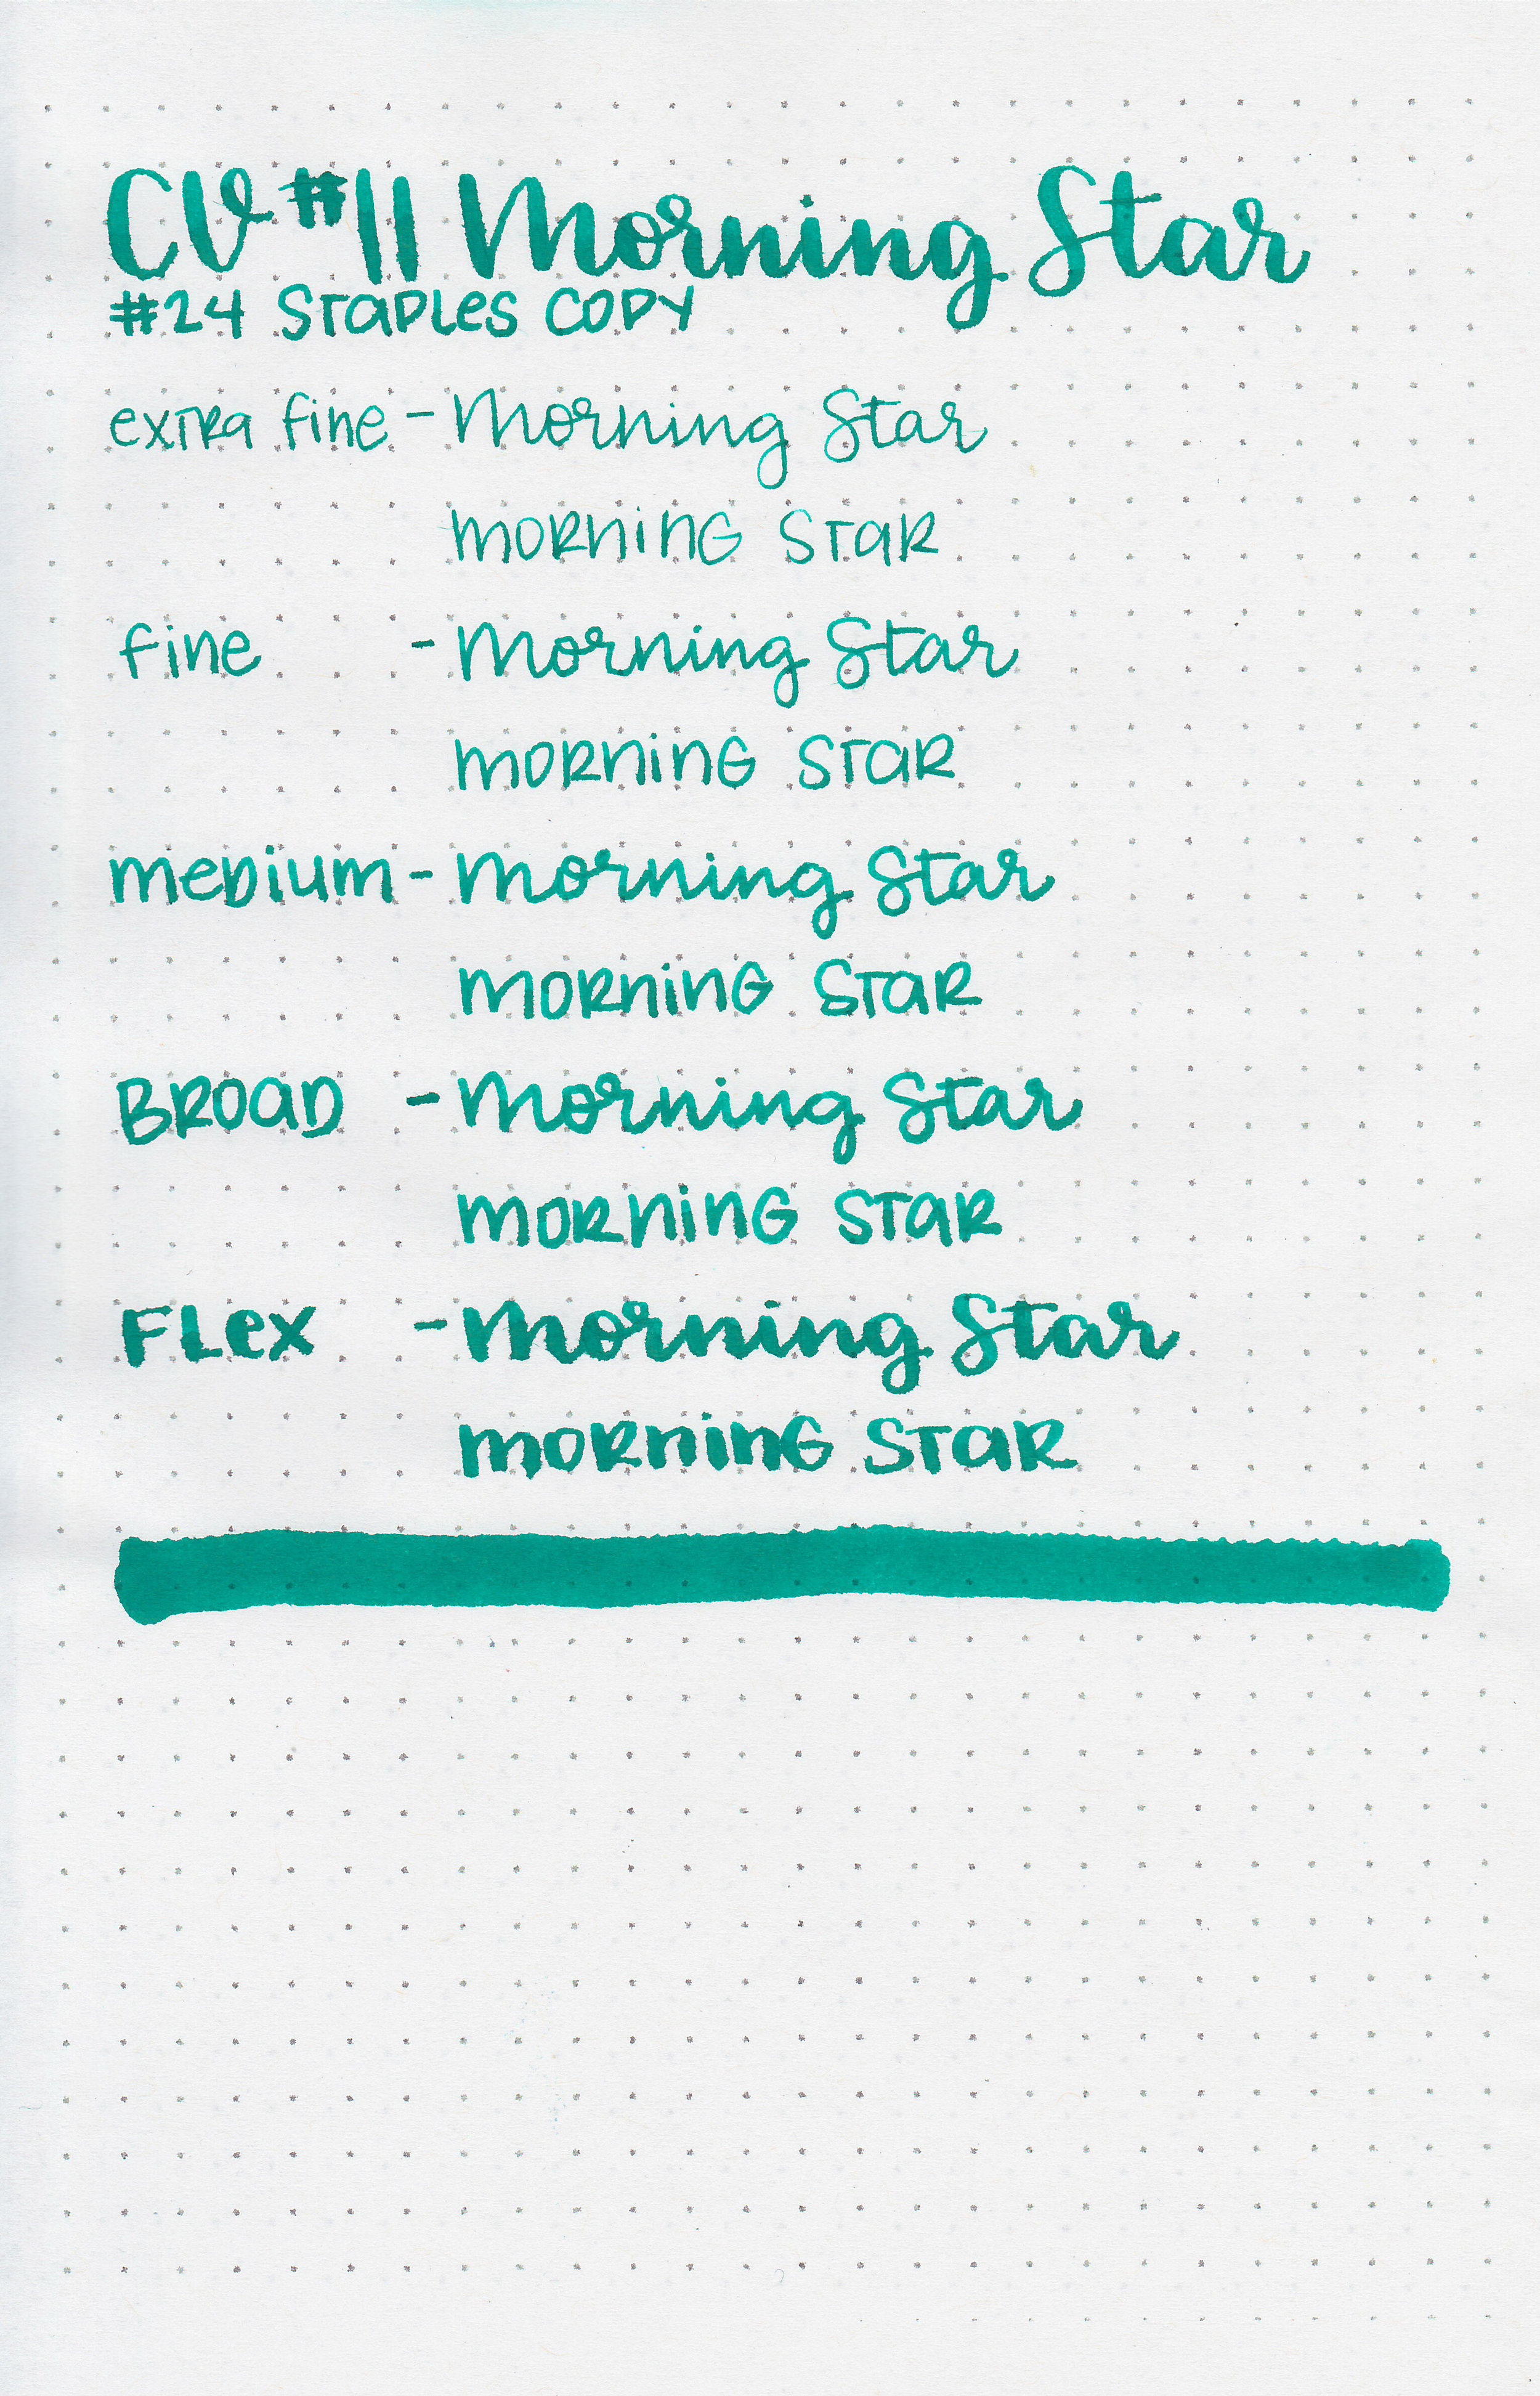 CV #11 Morning Star
#24 Staples Copy
extra fine - Morning Star
morning star
fine - Morning Star
morning star
medium - Morning Star
morning star
Broad - Morning Star
morning star
Flex - Morning Star
morning star